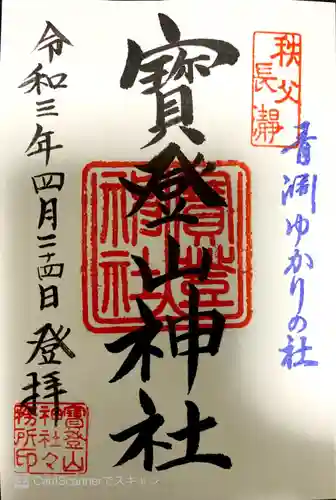 秩父
長瀞
青淵ゆかりの社
寳登山神社
寳登山
神社々
務所印
令和三年四月二十四日
登拝
CamScannerでスキャン